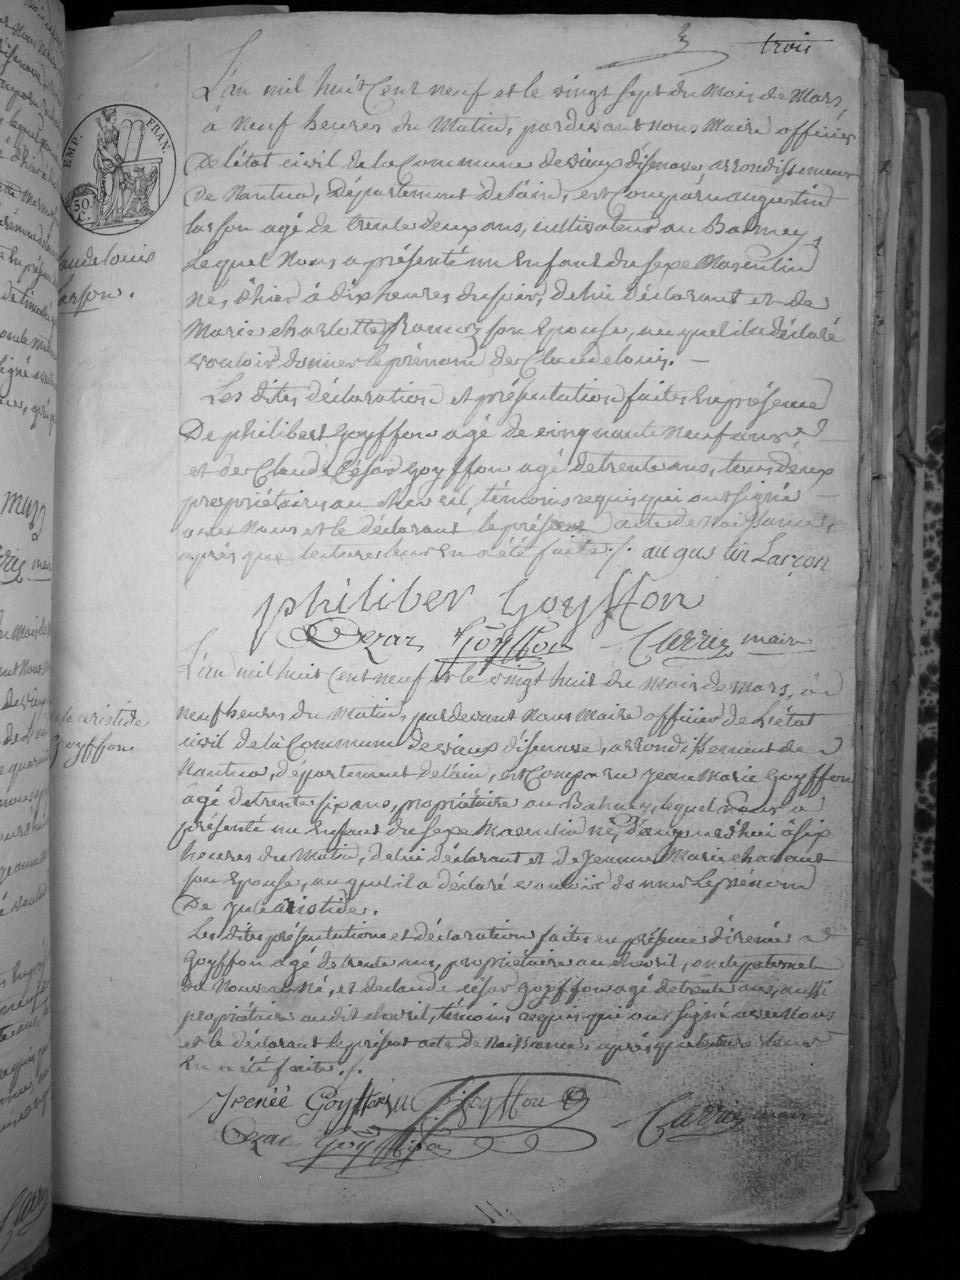 trois
L'an mil huit Cent neuf et le vingt sept du Mois de Mars,
à Neuf heures du Matin, pardevant nous Maire officier
De l'état civil de la Commune de vieux d'isenave, arrondissement
De Nantua, Département de l'ain, est Comparu augustin
larson agé de trente deux ans, cultivateur au Balmey,
Lequel Nous a présenté un Enfant du sexe Masculin
Nés d'hier à dix heures du soir, de lui déclarant et de
Marie charlotte son Epouse, auquel il a déclaré
vouloir donner le prénom de Claude louis. —
Les dites déclaration et présentation faites En présence
De philibert Goyffon agé de cinquante neuf ans
et de Claude César Goyffon agé de trente ans, tous deux
propriétaires au chevril, témoins requis qui ont signé
avec Nous et le déclarant le présent acte de Naissance,
après que lecture leur En a été faite ./. augustin Larçon
philiber Goyffon
Cezar Goÿffon Carrier maire
EMP. FRAN.
50 C.
Claude louis
larson.
L'an mil huit Cent neuf et le vingt huit du mois de mars, à
neuf heures du Matin, pardevant Nous Maire officier de L'état
civil de la Commune de vieux d'isenave, arrondissement de
Nantua, département de l'ain, est Comparu Jean Marie Goyffon
âgé de trente six ans, propriétaire au Balmey, lequel Nous a
présenté un Enfant du sexe Masculin né d'aujourd'hui à six
heures du Matin, de lui déclarant et de Jeanne Marie
son Epouse, auquel il a déclaré vouloir donner Le prénom
De jule aristide.
Les dites présentation et déclaration faites en présence d'irenée
Goyffon agé de trente ans, propriétaire au chevril, oncle paternel
du Nouveau né, et de claude césar goyffon agé de trente ans, aussi
propriétaire audit chevril, témoins requis qui ont signé avec Nous
et le déclarant le présent acte de Naissance, après que lecture leur
En a été faite ./.
jule aristide
Goyffon.
Irenée Goyffon Goyffon
Cezar Goÿffon Carrier maire